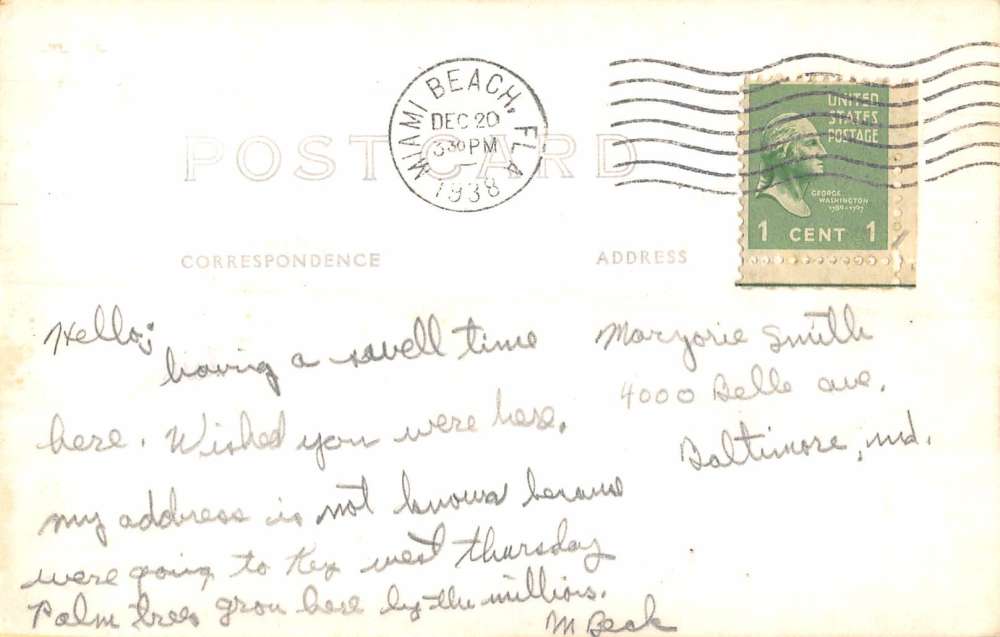 MIAMI BEACH, FLA
DEC 20
3 30 PM
1938
UNITED
STATES
POSTAGE
GEORGE
WASHINGTON
1789-1797
1 CENT 1
POST CARD
CORRESPONDENCE
ADDRESS
Hello;
having a swell time
here. Wished you were here.
my address is not known because
were going to Key west thursday
Palm trees grow here by the millions.
M Beck
Marjorie Smith
4000 Belle ave.
Baltimore, md.